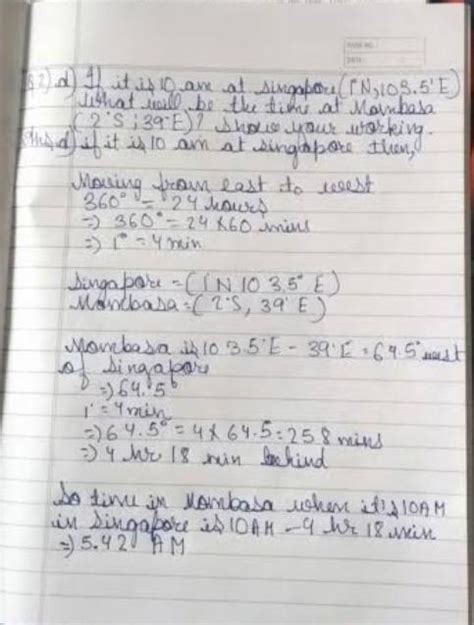 PAGE NO.
DATE
Q2) d) If it is 10 am at Singapore (1°N, 103.5°E)
what will be the time at Mombasa
(2°S, 39°E)? Show your working.
Ans d) if it is 10 am at Singapore then,
Moving from east to west
360° = 24 hours
=> 360° = 24 x 60 mins
=> 1° = 4 min
Singapore = (1°N 103.5° E)
Mombasa = (2°S, 39°E)
Mombasa is 103.5°E - 39°E = 64.5° west
of Singapore
=> 64.5°
1° = 4min
=> 64.5° = 4 x 64.5 = 258 mins
=> 4 hr 18 min behind
So time in Mombasa when it's 10AM
in Singapore is 10AM - 4 hr 18 min
=> 5.42 AM